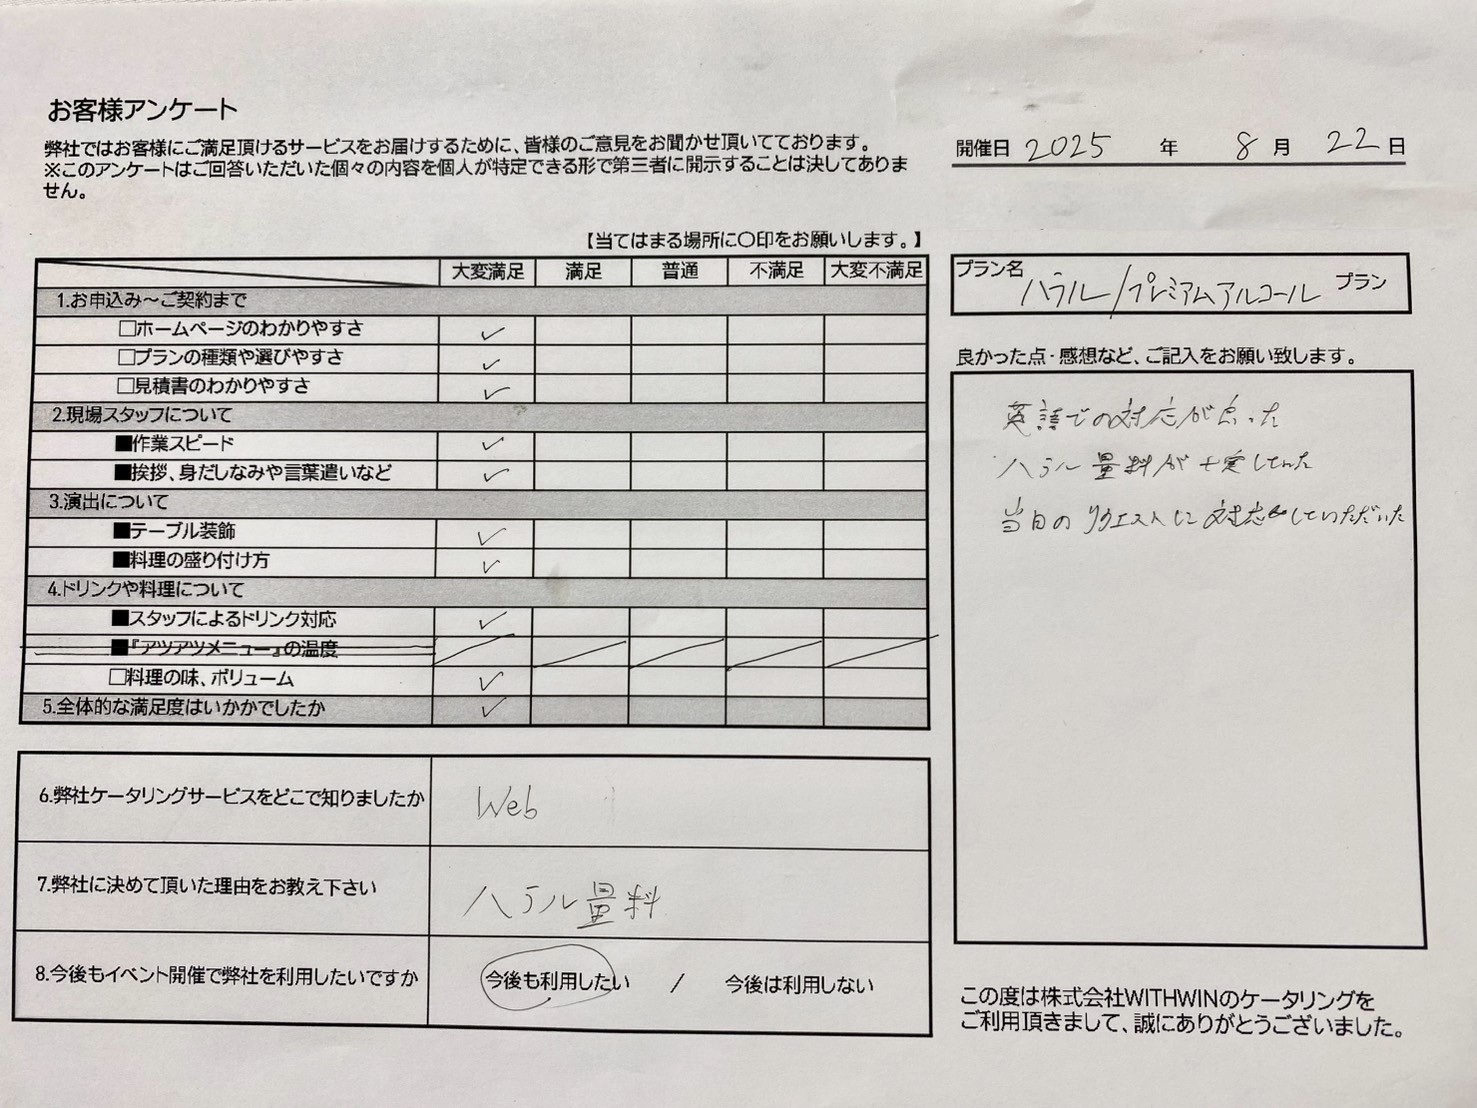 お客様アンケート
弊社ではお客様にご満足頂けるサービスをお届けするために、皆様のご意見をお聞かせ頂いてております。
※このアンケートはご回答いただいた個々の内容を個人が特定できる形で第三者に開示することは決してありま
せん。
開催日 2025 年 8 月 22 日
【当てはまる場所に〇印をお願いします。】
大変満足 満足 普通 不満足 大変不満足
1.お申込み～ご契約まで
□ホームページのわかりやすさ ✓
□プランの種類や選びやすさ ✓
□見積書のわかりやすさ ✓
2.現場スタッフについて
■作業スピード ✓
■挨拶、身だしなみや言葉遣いなど ✓
3.演出について
■テーブル装飾 ✓
■料理の盛り付け方 ✓
4.ドリンクや料理について
■スタッフによるドリンク対応 ✓
■『アツアツメニュー』の温度
□料理の味、ボリューム ✓
5.全体的な満足度はいかかでしたか ✓
6.弊社ケータリングサービスをどこで知りましたか Web
7.弊社に決めて頂いた理由をお教え下さい ハラル量料
8.今後もイベント開催で弊社を利用したいですか 今後も利用したい / 今後は利用しない
プラン名 ハラル/プレミアムアルコール プラン
良かった点・感想など、ご記入をお願い致します。
英語での対応が良った
ハラル量料が していた
当日のリクエストに対応していただいた
この度は株式会社WITHWINのケータリングを
ご利用頂きまして、誠にありがとうございました。